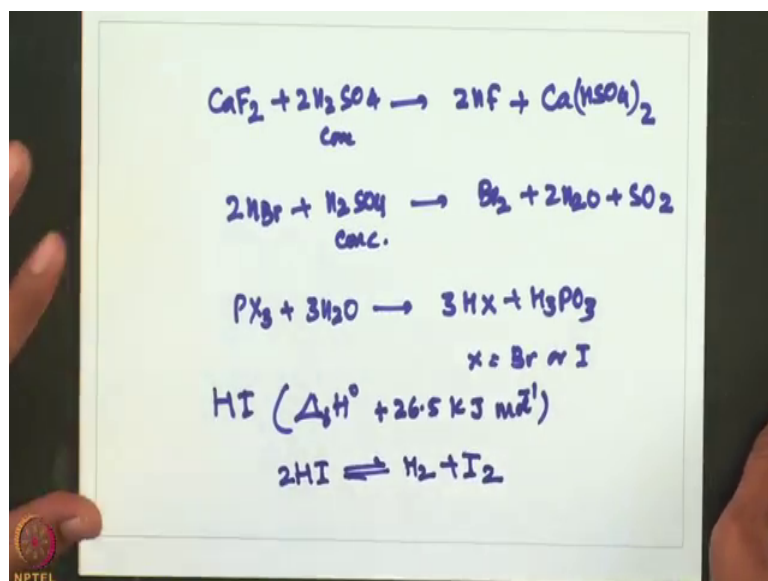 CaF₂ + 2H₂SO₄ ⟶ 2HF + Ca(HSO₄)₂
conc
2HBr + H₂SO₄ ⟶ Br₂ + 2H₂O + SO₂
conc.
PX₃ + 3H₂O ⟶ 3HX + H₃PO₃
X = Br or I
HI (ΔfH° +26.5 KJ mol⁻¹)
2HI ⇌ H₂ + I₂
NPTEL